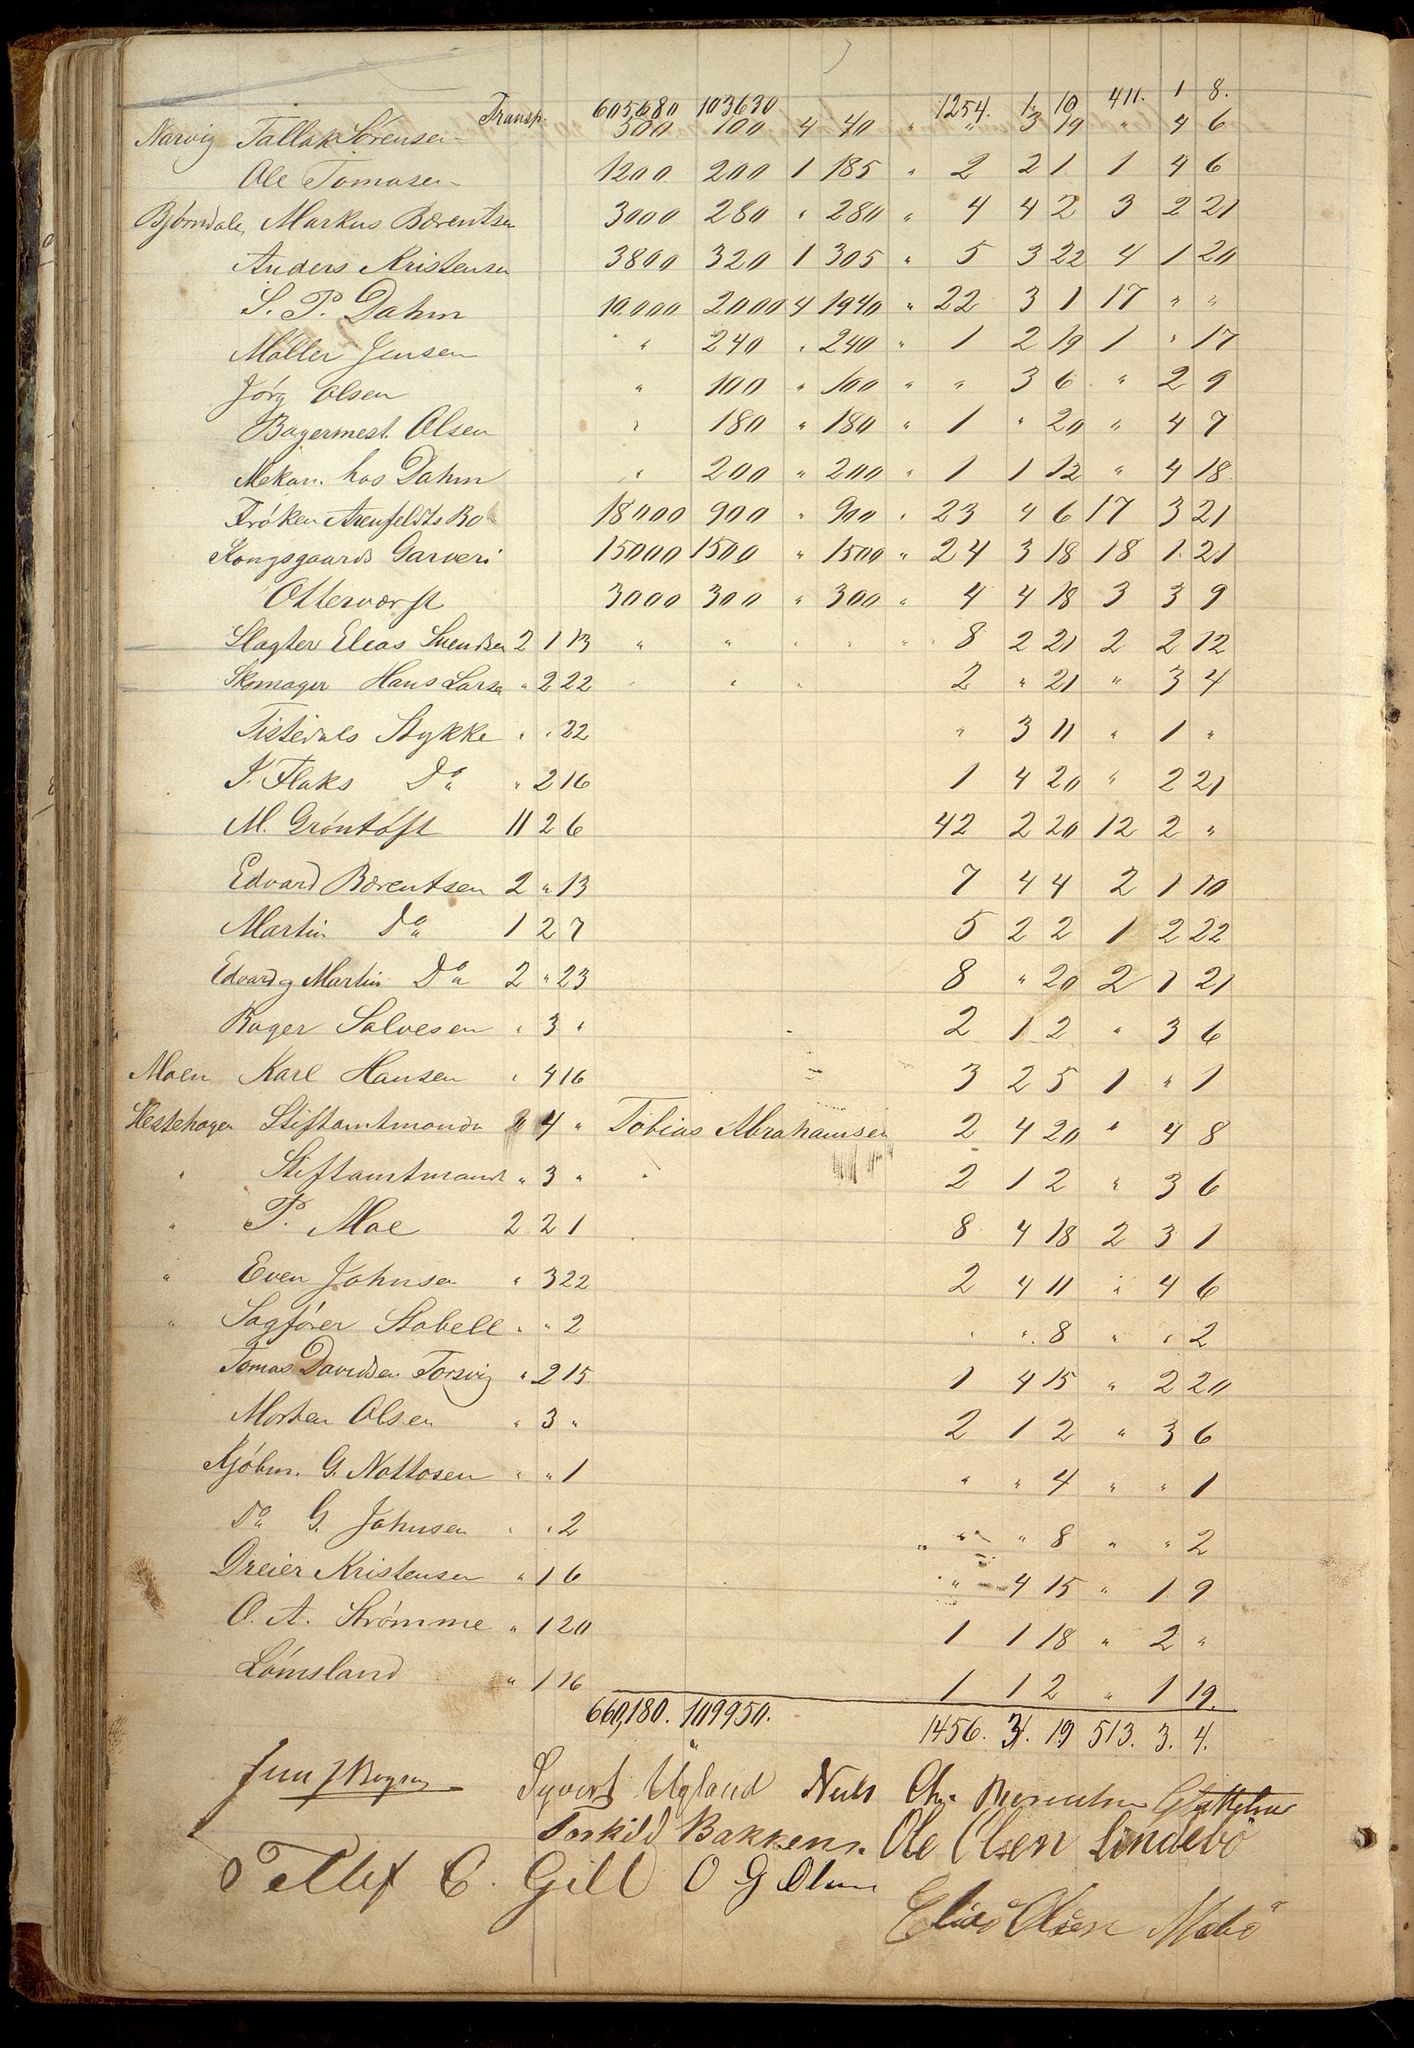 Transp. 605,680 103630 1254. 1. 10 411. 1 8.
Narvig Tallak Sørensen 500 100 4 40 " " 3 19 " 4 6
Ole Tomasen 1200 200 1 185 " 2 2 1 1 4 6
Bjørndale, Markus Bærentsen 3000 280 " 280 " 4 4 2 3 2 21
Anders Kristensen 3800 320 1 305 " 5 3 22 4 1 20
S. P. Dahm 10.000 2000 4 1940 " 22 3 1 17 " "
Møller Jensen " 240 " 240 " 1 2 19 1 " 17
Jørg Olsen " 100 " 100 " " 3 6 " 2 9
Bagermest. Olsen " 180 " 180 " 1 " 20 " 4 7
Mekan. hos Dahm " 200 " 200 " 1 1 12 " 4 18
Frøken Arenfeldts Bo 18000 900 " 900 " 23 4 6 17 3 21
Kongsgaards Garveri 15000 1500 " 1500 " 24 3 18 18 1 21
Otterværft 3000 300 " 300 " 4 4 18 3 3 9
Slagter Elias Svendsen 2 1 13 " " " " " 8 2 21 2 2 12
Skomager Hans Larsen " 2 22 " " " 2 " 21 " 3 4
Tistedals Stykke " " 22 " 3 11 " 1 "
J. Flaks Do " 2 16 1 4 20 " 2 21
M. Grøntoft 11 2 6 42 2 20 12 2 "
Edvard Bærentsen 2 " 13 7 4 4 2 1 10
Martin Do 1 2 7 5 2 2 1 2 22
Edvard og Martin Do 2 " 23 8 " 20 2 1 21
Bager Salvesen " 3 " 2 1 2 " 3 6
Moen Karl Hansen " 4 16 3 2 5 1 " 1
Hestehagen Stiftamtmanden " 4 " Tobias Abrahamsen 2 4 20 " 4 8
" Stiftamtmand " 3 " 2 1 2 " 3 6
" P. Moe 2 2 1 8 4 18 2 3 1
" Even Johnsen " 3 22 2 4 11 " 4 6
" Sagfører Stabell " " 2 " " 8 " " 2
Tomas Davidsen Torsvig " 2 15 1 4 15 " 2 20
Morten Olsen " 3 " 2 1 2 " 3 6
Kjøbm. G. Nottosen " " 1 " " 4 " " 1
Do G. Johnsen " " 2 " " 8 " " 2
Dreier Kristensen " 1 6 " 4 15 " 1 9
O. A. Strømme " 1 20 1 1 18 " 2 "
Lømsland " 1 16 1 1 2 " 1 19.
660,180. 109950. 1456. 3. 19 513. 3. 4.
Syvert Ugland Niels Chr.
Torkild Bakken. Ole Olsen Lindebö
Tellef C. Gill O G Olsen
Elias Olsen Mebö